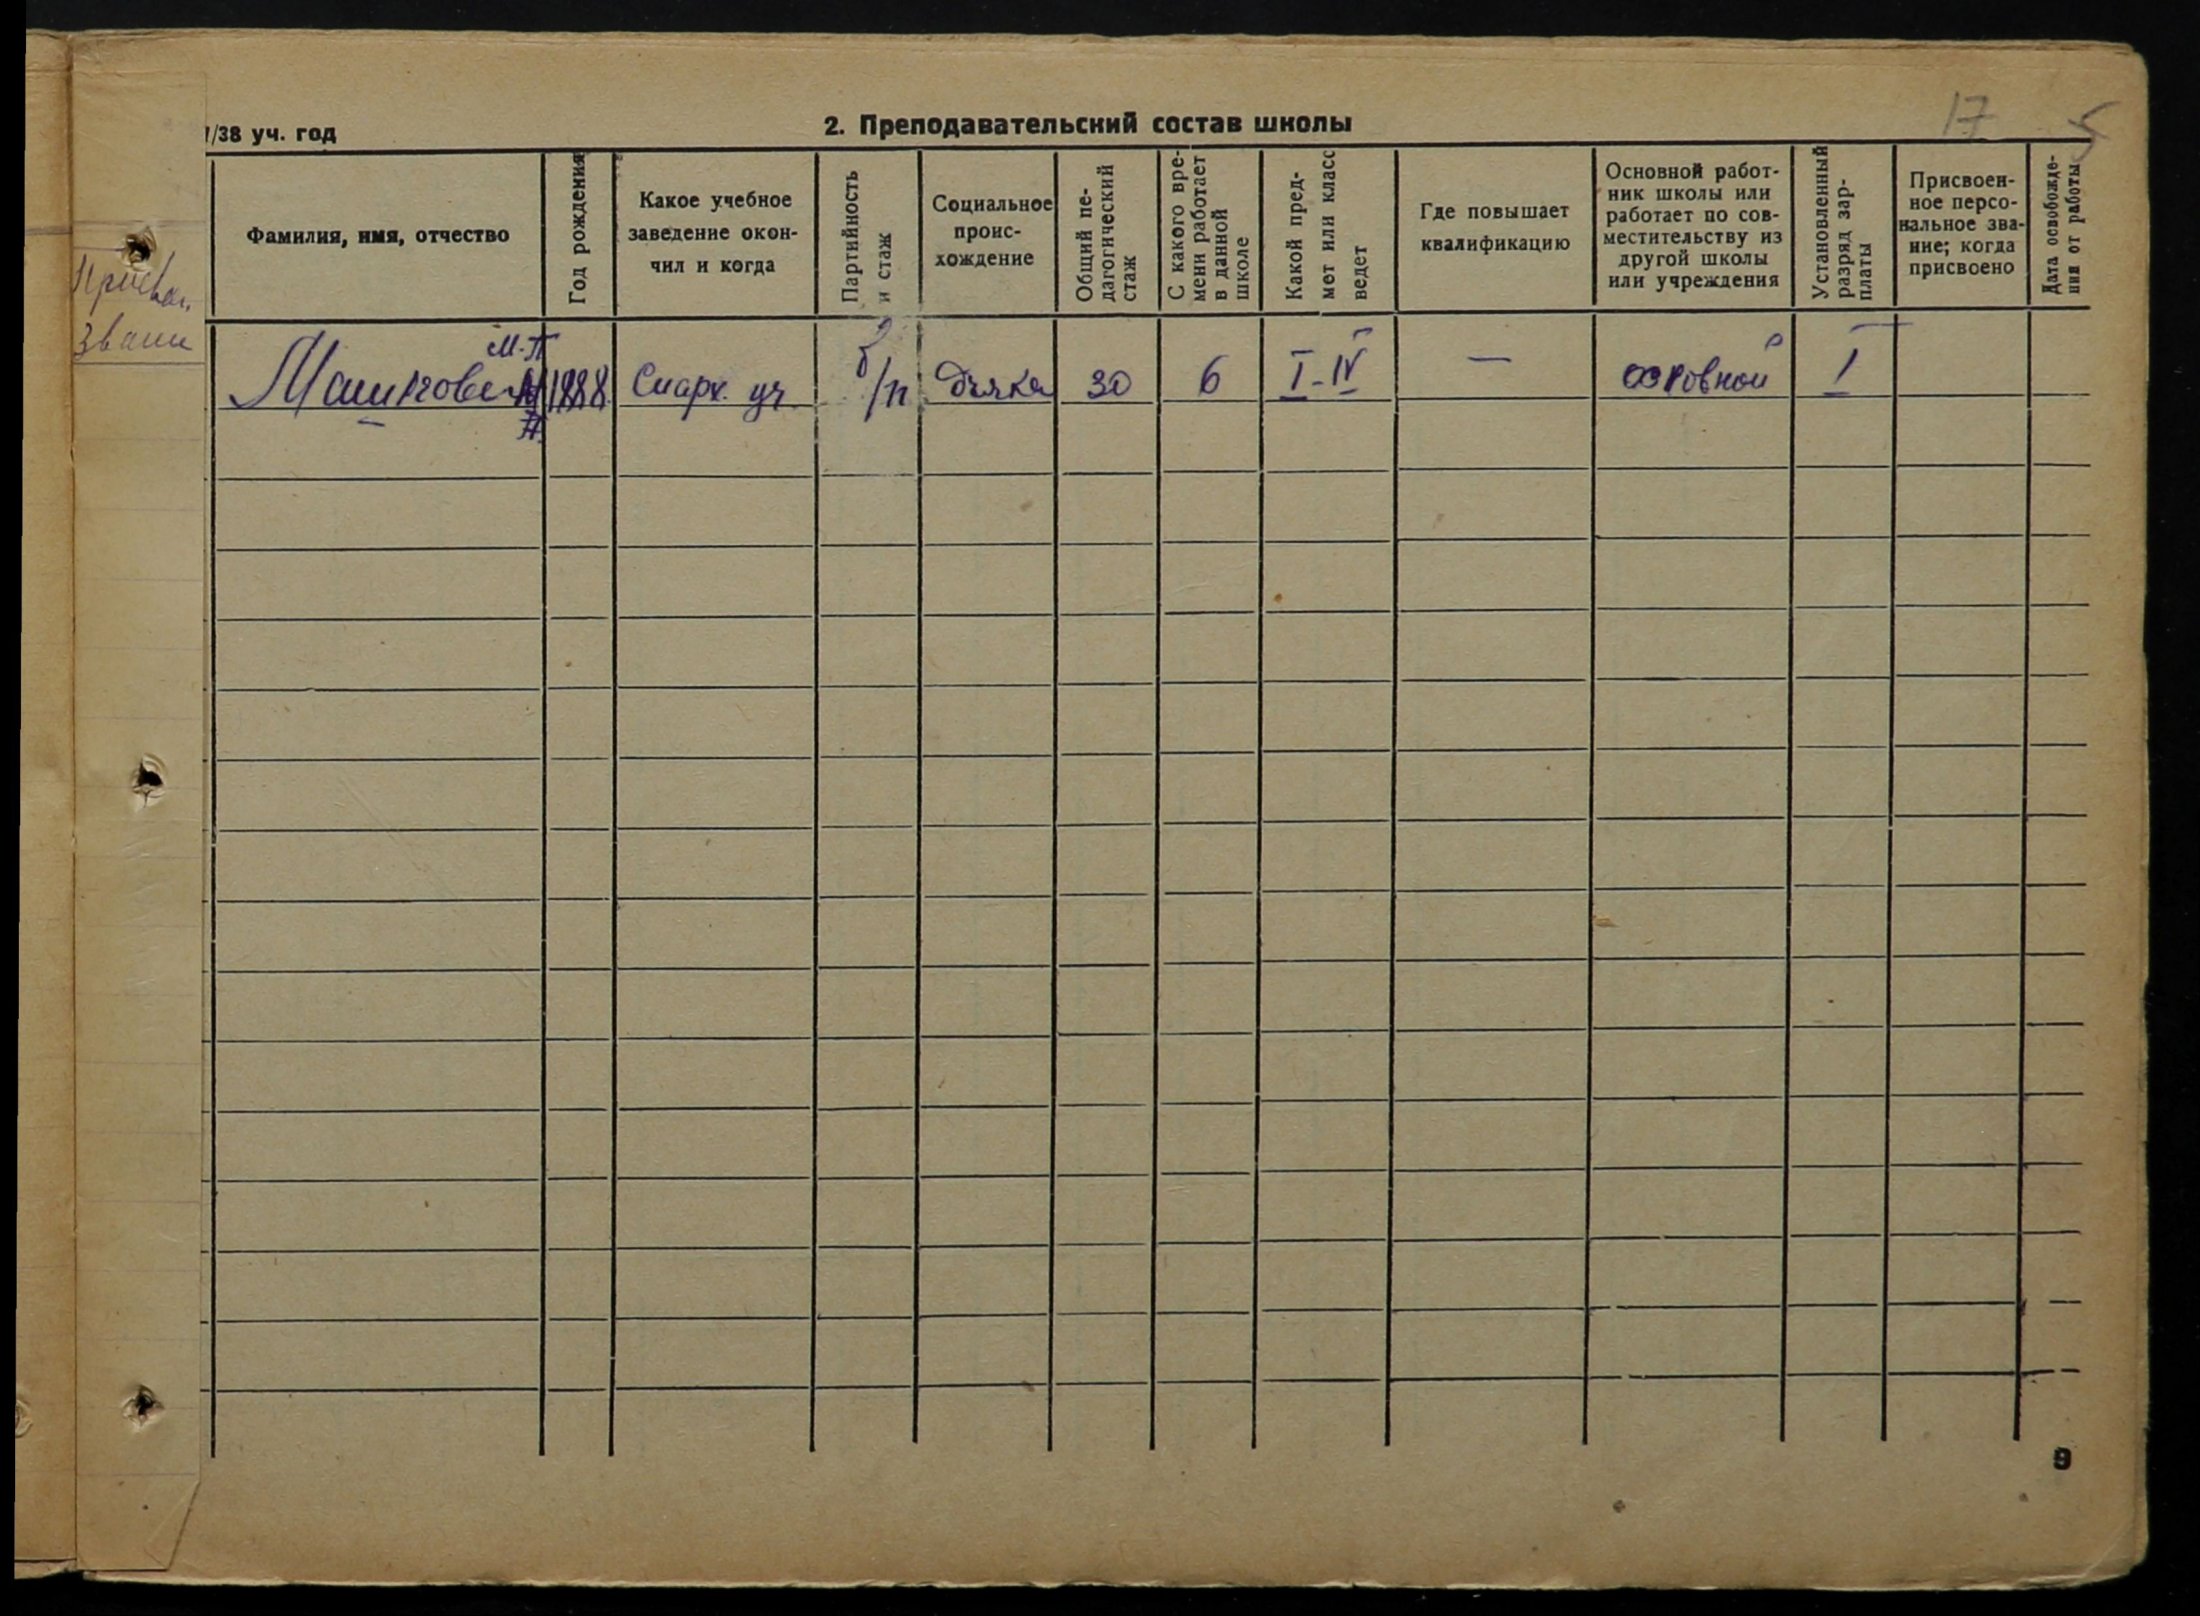 /38 уч. год
2. Преподавательский состав школы
17
5
Фамилия, имя, отчество
Год рождения
Какое учебное
заведение окон-
чил и когда
Партийность
и стаж
Социальное
проис-
хождение
Общий пе-
дагогический
стаж
С какого вре-
мени работает
в данной
школе
Какой пред-
мет или класс
ведет
Где повышает
квалификацию
Основной работ-
ник школы или
работает по сов-
местительству из
другой школы
или учреждения
Установленный
разряд зар-
платы
Присвоен-
ное персо-
нальное зва-
ние; когда
присвоено
Дата освобожде-
ния от работы
М.П
1888
уч
б/п
дьяка
30
6
I-IV
—
основной
I
9